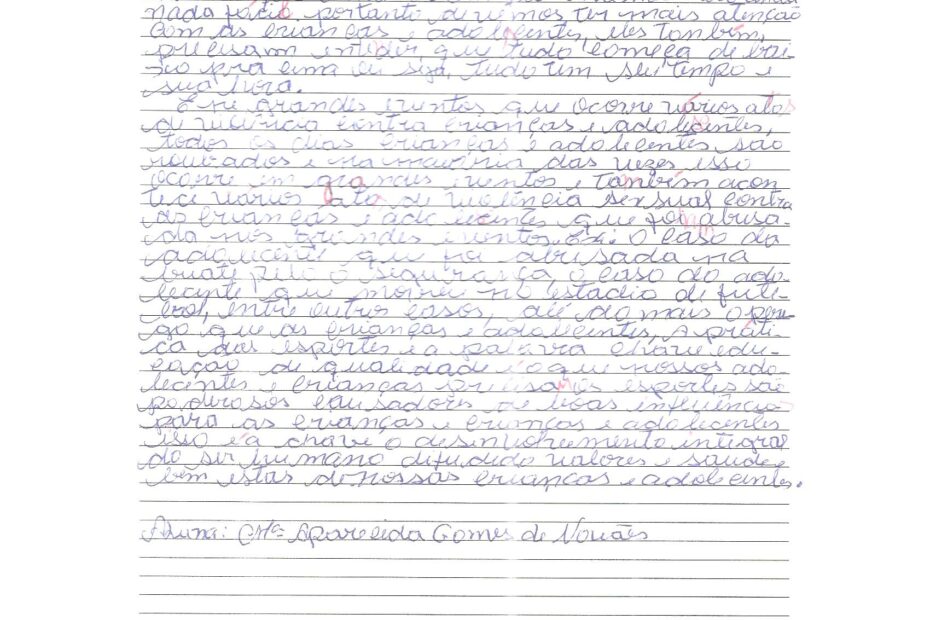 nada fácil, portanto devemos ter mais atenção
com as crianças e adolecentes, eles tanbém,
precisam entender, que tudo começa de bai-
xo pra cima ou seja, tudo tem seu tempo e
sua hora.
É ne grandes eventos que ocorre vários atos
de violência contra crianças e adolecentes,
todos os dias crianças e adolecentes são
roubados e na maioria das vezes isso
ocorre em grandes eventos e também acon
tece vários ato de violência sexsual contra
as crianças e adolecentes que foi abusa-
da nos grandes eventos. O caso da
adolecente que foi abusada na
buate pelo o segurança, o caso do ado-
lecente que morreu no estadio de fute-
bool, entre outros casos, até do mais o peri-
go que as crianças e adolecentes, A práti-
ca dos esportes e a palavra chave edu-
cação de qualidade e o que nossos ado-
lecentes e crianças precisa os esportes são
poderosos causadores de boas influência
para as crianças e crianças e adolecentes
isso e a chave o desenvolvemento integral
do ser humano difundido valores e saude e
bem estas de nossas crianças e adolecentes.
Aluna: Mª Aparecida Gomes de Novães